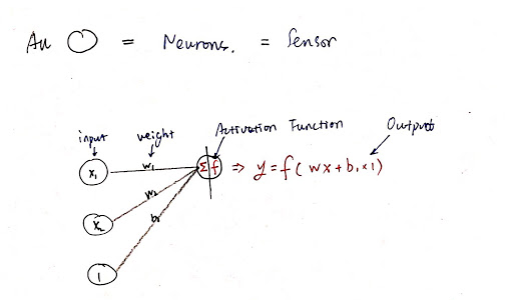 All = Neurons. = Sensor
input weight Activation Function Output
x₁ w₁ Σ f ⇒ y = f( wx + b₁×1)
x₂ w₂
1 b₁